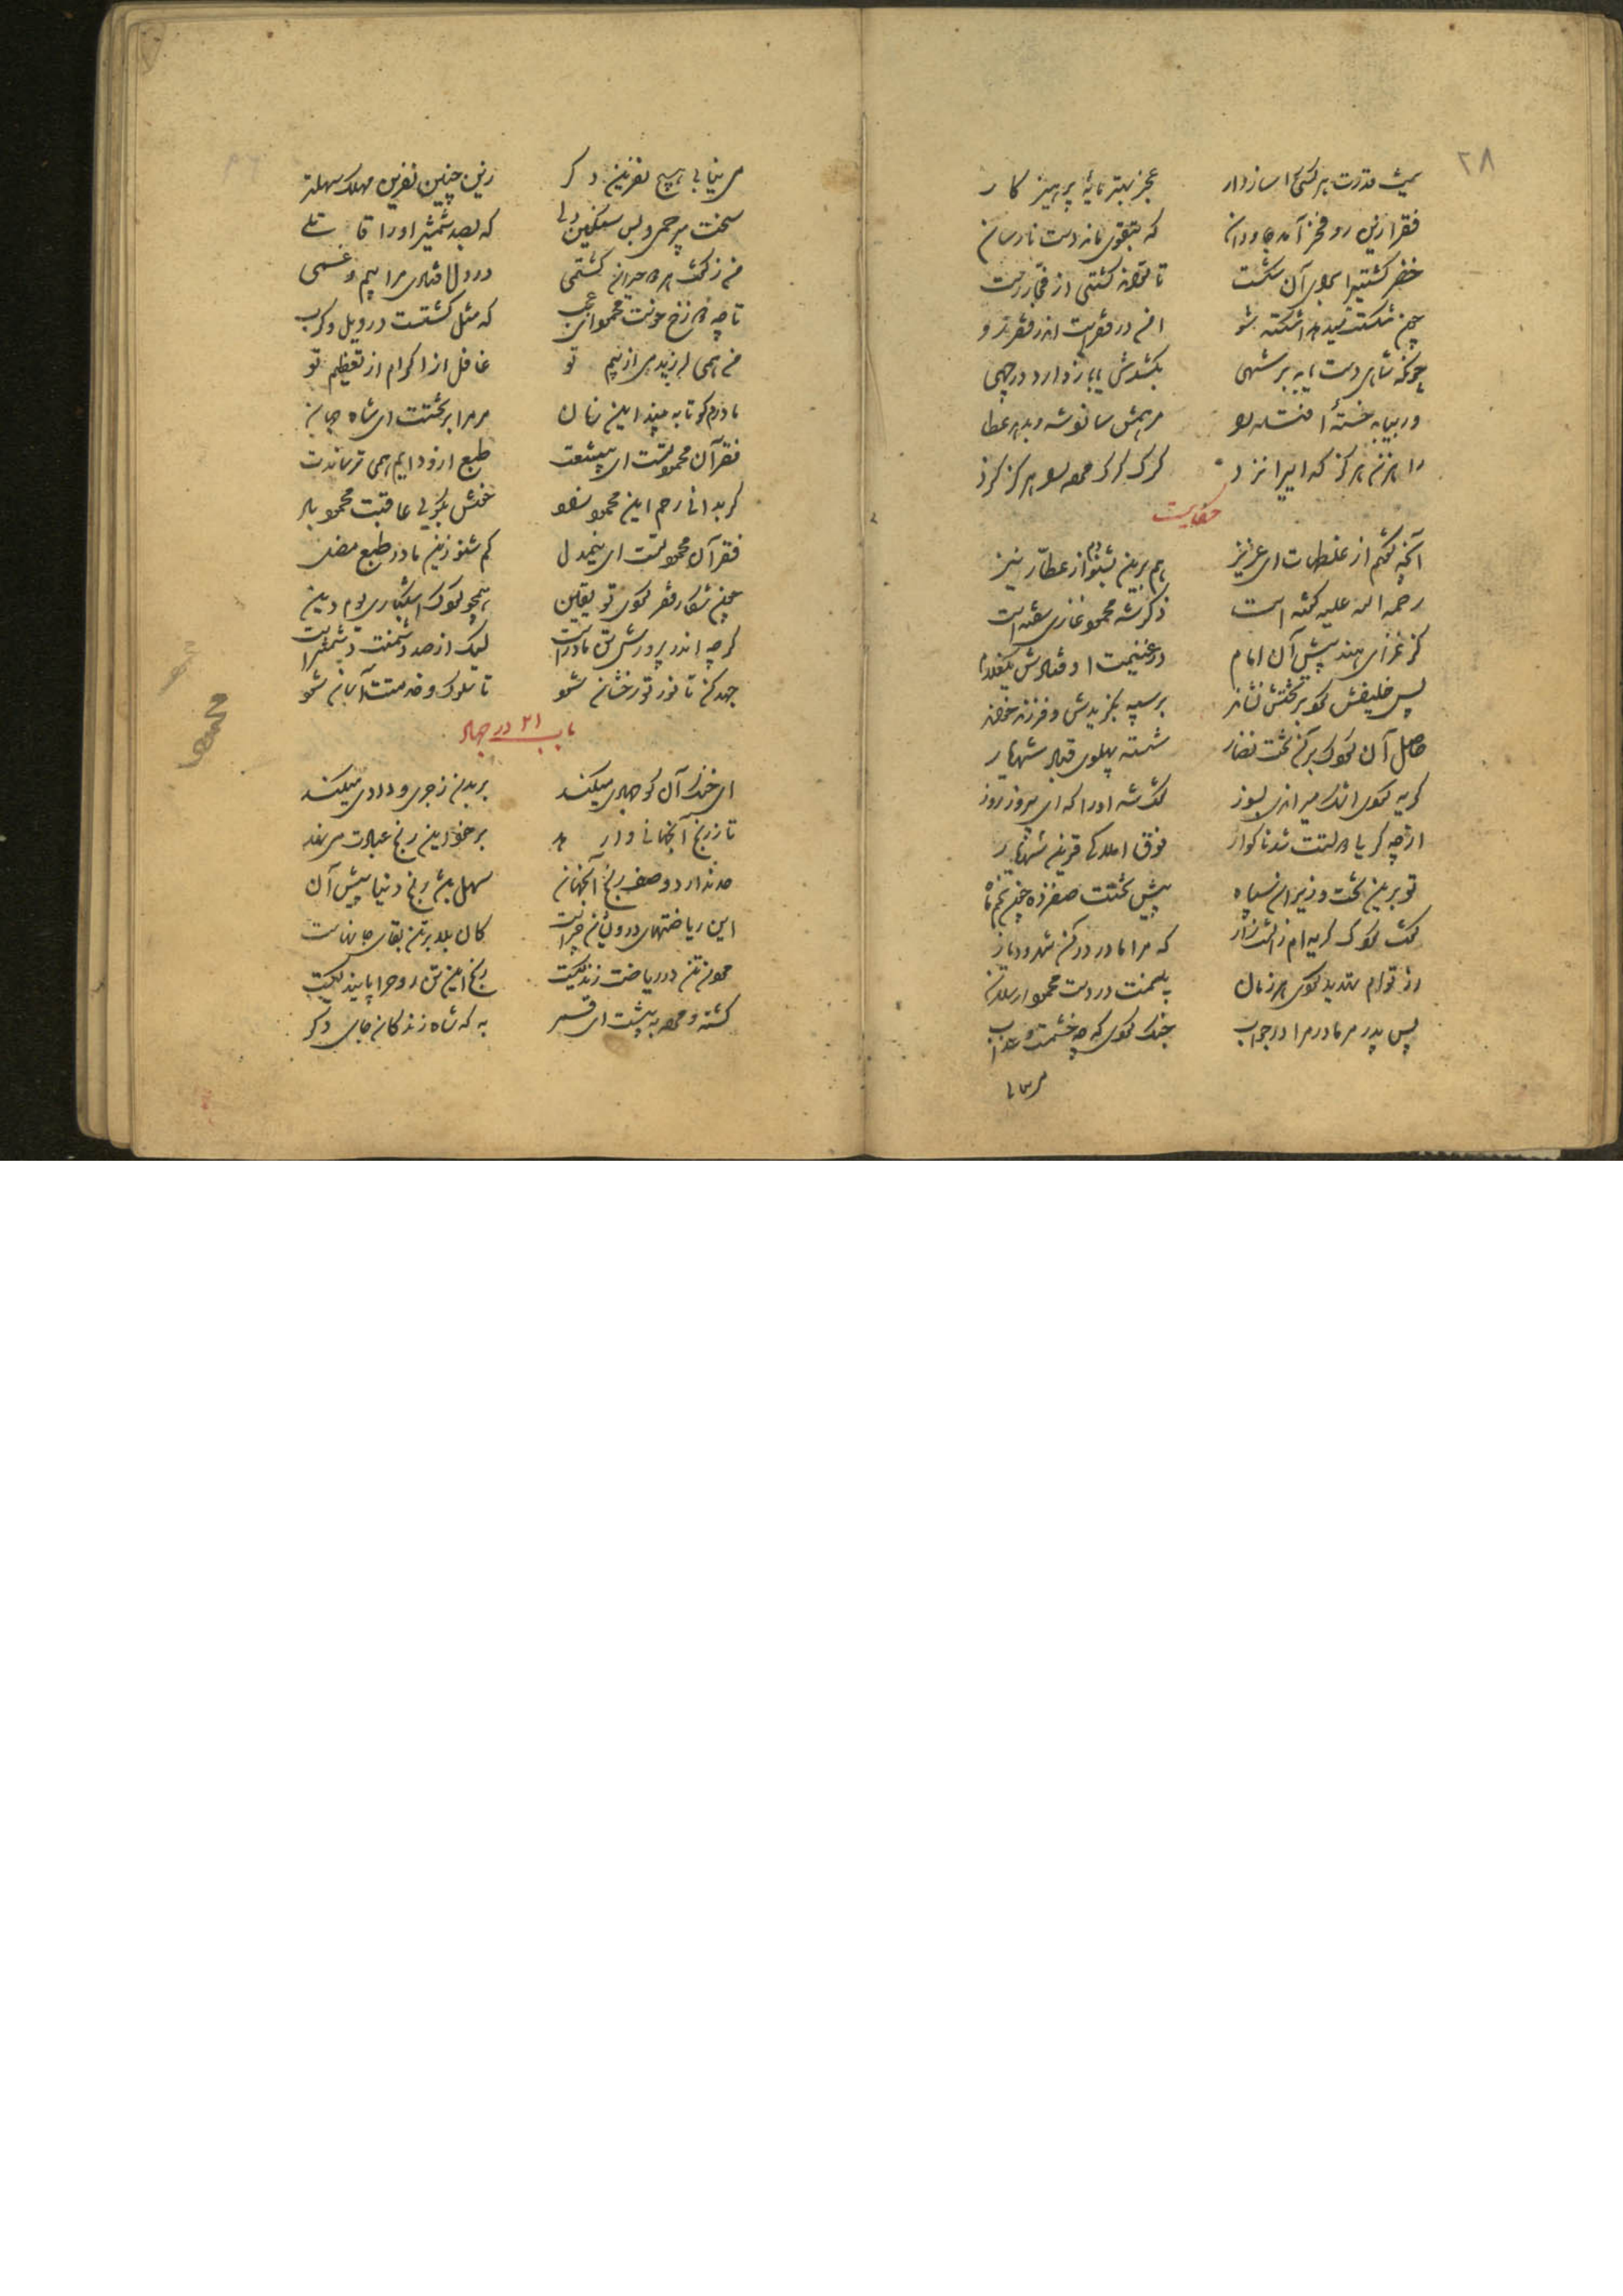 ۲۸
بیش قدرت هر کسی را ساز دار عجز بهتر مایهٔ پرهیز کار
فقر ازین رو فخر آمد جاودان که بتقوی ماند دست نارسان
خضر کشتی را برای آن شکست تا تواند کشتی از فجار رست
چون شکسته میرهد اشکسته شو امن در فقرست اندر فقر رو
چونکه شاهی دست یابد بر شهی بکشدش یا باز دارد در چهی
ور بیابد خستهٔ افتاده را مرهمش سازد شه و بدهد عطا
راهزن هرگز گدایی را نزد گرگ گرگ مرده را هرگز گزد
حکایت
آنچه گفتم از غلطهات ای عزیز هم برین بشنو دم عطار نیز
رحمة الله علیه گفته است ذکر شه محمود غازی سفته است
کز غزای هند پیش آن همام در غنیمت اوفتادش یک غلام
پس خلیفه‌ش کرد و بر تختش نشاند بر سپه بگزیدش و فرزند خواند
حاصل آن کودک برین تخت نضار شسته پهلوی قباد شهریار
گریه کردی اشک میراندی بسوز گفت شه او را که ای پیروز روز
از چه گریی دولتت شد ناگوار فوق املاکی قرین شهریار
تو برین تخت و وزیران و سپاه پیش تختت صف زده چون نجم و ماه
گفت کودک گریه‌ام زانست زار که مرا مادر در آن شهر و دیار
از توام تهدید کردی هر زمان بینمت در دست محمود ارسلان
پس پدر مر مادرم را در جواب جنگ کردی کین چه خشمست و عذاب
می نیابی
می نیابی هیچ نفرین دگر زین چنین نفرین مهلک سهلتر
سخت بیرحمی و بس سنگین دلی که بصد شمشیر او را قاتلی
من ز گفت هر دو حیران گشتمی در دل افتادی مرا بیم و غمی
تا چه دوزخ خوست محمود ای عجب که مثل گشتست در ویل و کرب
من همی لرزیدمی از بیم تو غافل از اکرام و از تعظیم تو
مادرم کو تا ببیند این زمان مر مرا بر تخت ای شاه جهان
فقر آن محمود تست ای بی‌سعت طبع ازو دایم همی ترساندت
گر بدانی رحم این محمود راد خوش بگویی عاقبت محمود باد
فقر آن محمود تست ای بیم‌دل کم شنو زین مادر طبع مضل
چون شکار فقر گردی تو یقین همچو کودک اشک باری یوم دین
گرچه اندر پرورش تن مادرست لیک از صد دشمنت دشمن‌ترست
جهد کن تا نور تو رخشان شود تا سلوک و خدمتت آسان شود
باب ۲۱ در جهاد
ای خنک آن کو جهادی میکند بر بدن زجری و دادی میکند
تا ز رنج آنجهانی وارهد بر خود این رنج عبادت می‌نهد
حد ندارد وصف رنج آنجهان سهل باشد رنج دنیا پیش آن
این ریاضتهای درویشان چراست کان بلا بر تن بقای جانهاست
مردن تن در ریاضت زندگیست رنج این تن روح را پایندگیست
کشته و مرده به پیشت ای قمر به که شاه زندگان جای دگر